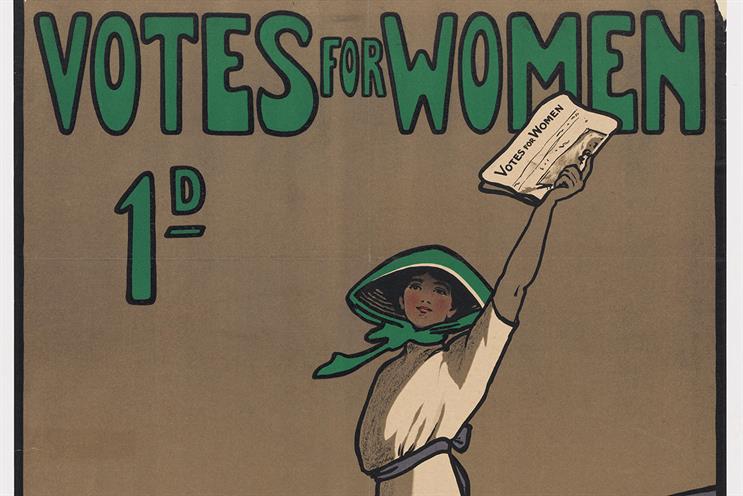 VOTES FOR WOMEN
1D
VOTES FOR WOMEN